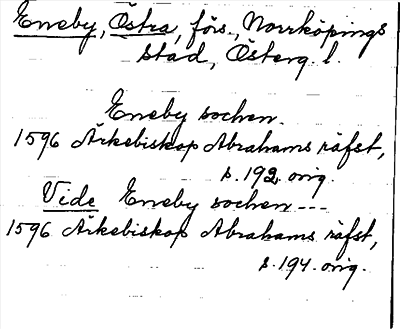 Eneby, Östra, förs., Norrköpings
stad, Österg. l.
Eneby sochen.
1596 Ärkebiskop Abrahams räfst,
s. 192 orig.
Vide Eneby sochen ---
1596 Ärkebiskop Abrahams räfst,
s. 194. orig.